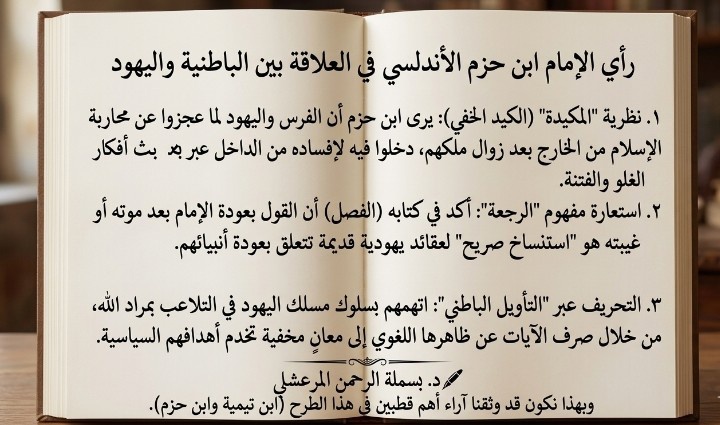 رأي الإمام ابن حزم الأندلسي في العلاقة بين الباطنية واليهود
١. نظرية "المكيدة" (الكيد الخفي): يرى ابن حزم أن الفرس واليهود لما عجزوا عن محاربة
الإسلام من الخارج بعد زوال ملكهم، دخلوا فيه لإفساده من الداخل عبر بث أفكار
الغلو والفتنة.
٢. استعارة مفهوم "الرجعة": أكد في كتابه (الفصل) أن القول بعودة الإمام بعد موته أو
غيبته هو "استنساخ صريح" لعقائد يهودية قديمة تتعلق بعودة أنبيائهم.
٣. التحريف عبر "التأويل الباطني": اتهمهم بسلوك مسلك اليهود في التلاعب بمراد الله،
من خلال صرف الآيات عن ظاهرها اللغوي إلى معانٍ مخفية تخدم أهدافهم السياسية.
د. بسملة الرحمن المرعشلي
وبهذا نكون قد وثقنا آراء أهم قطبين في هذا الطرح (ابن تيمية وابن حزم).